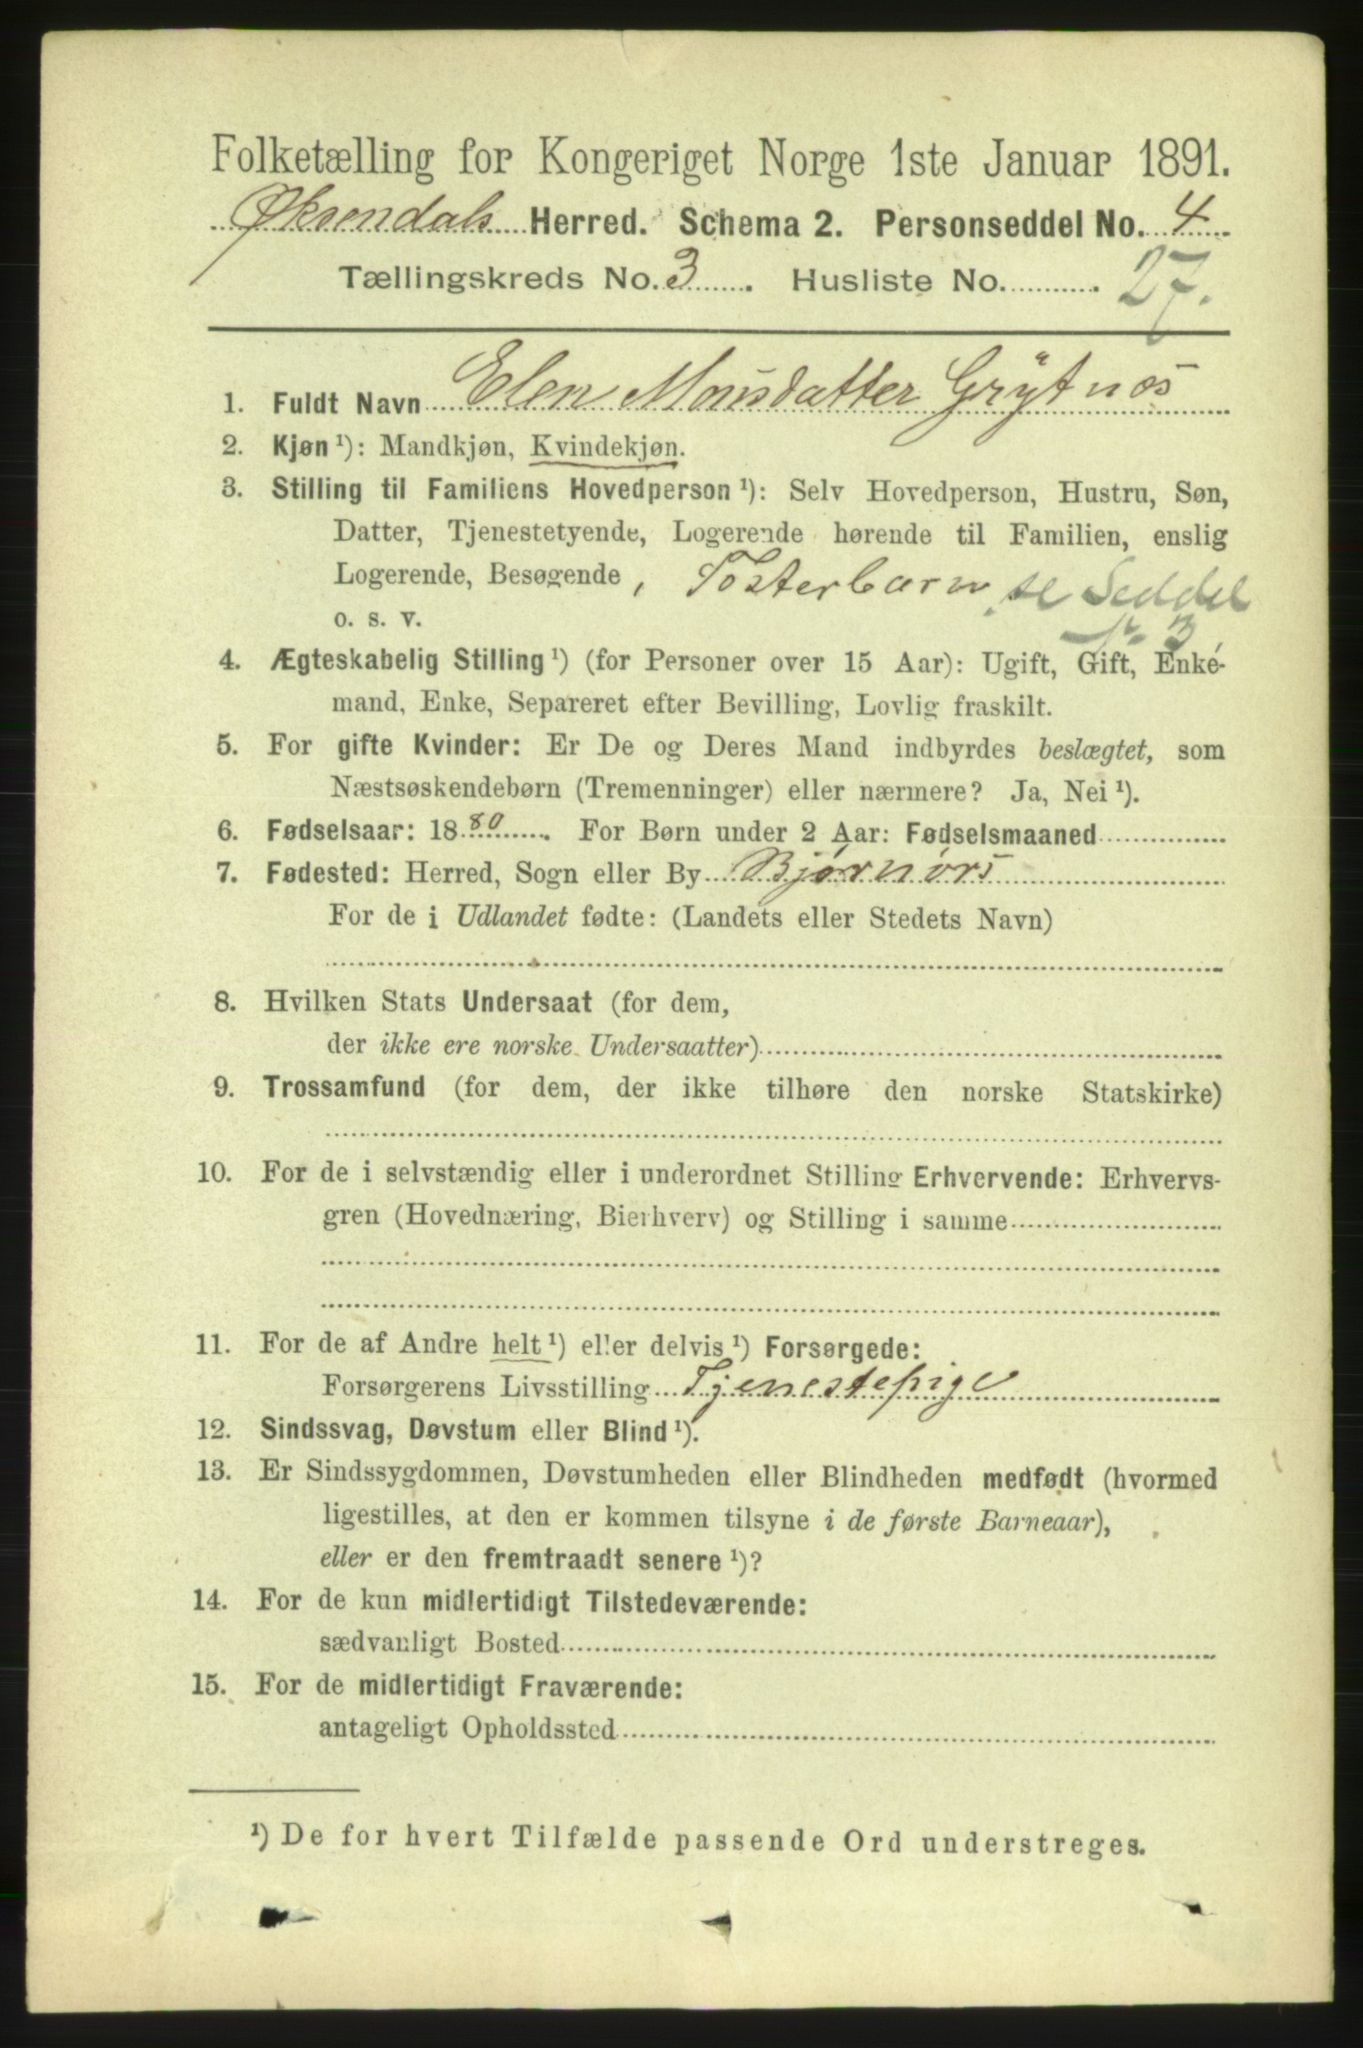 Folketælling for Kongeriget Norge 1ste Januar 1891.
Øksendals Herred. Schema 2. Personseddel No. 4
Tællingskreds No. 3. Husliste No. 27.
1. Fuldt Navn Elen Monsdatter Grytnes
2. Kjøn ¹): Mandkjøn, Kvindekjøn.
3. Stilling til Familiens Hovedperson ¹): Selv Hovedperson, Hustru, Søn,
Datter, Tjenestetyende, Logerende hørende til Familien, enslig
Logerende, Besøgende, Fosterbarn se Seddel
o. s. v. № 3
4. Ægteskabelig Stilling ¹) (for Personer over 15 Aar): Ugift, Gift, Enke-
mand, Enke, Separeret efter Bevilling, Lovlig fraskilt.
5. For gifte Kvinder: Er De og Deres Mand indbyrdes beslægtet, som
Næstsøskendebørn (Tremenninger) eller nærmere? Ja, Nei ¹).
6. Fødselsaar: 1880. For Børn under 2 Aar: Fødselsmaaned
7. Fødested: Herred, Sogn eller By Bjørnørs
For de i Udlandet fødte: (Landets eller Stedets Navn)
8. Hvilken Stats Undersaat (for dem,
der ikke ere norske Undersaatter)
9. Trossamfund (for dem, der ikke tilhøre den norske Statskirke)
10. For de i selvstændig eller i underordnet Stilling Erhvervende: Erhvervs-
gren (Hovednæring, Bierhverv) og Stilling i samme
11. For de af Andre helt ¹) eller delvis ¹) Forsørgede:
Forsørgerens Livsstilling Tjenestepige
12. Sindssvag, Døvstum eller Blind ¹).
13. Er Sindssygdommen, Døvstumheden eller Blindheden medfødt (hvormed
ligestilles, at den er kommen tilsyne i de første Barneaar),
eller er den fremtraadt senere ¹)?
14. For de kun midlertidigt Tilstedeværende:
sædvanligt Bosted
15. For de midlertidigt Fraværende:
antageligt Opholdssted
¹) De for hvert Tilfælde passende Ord understreges.